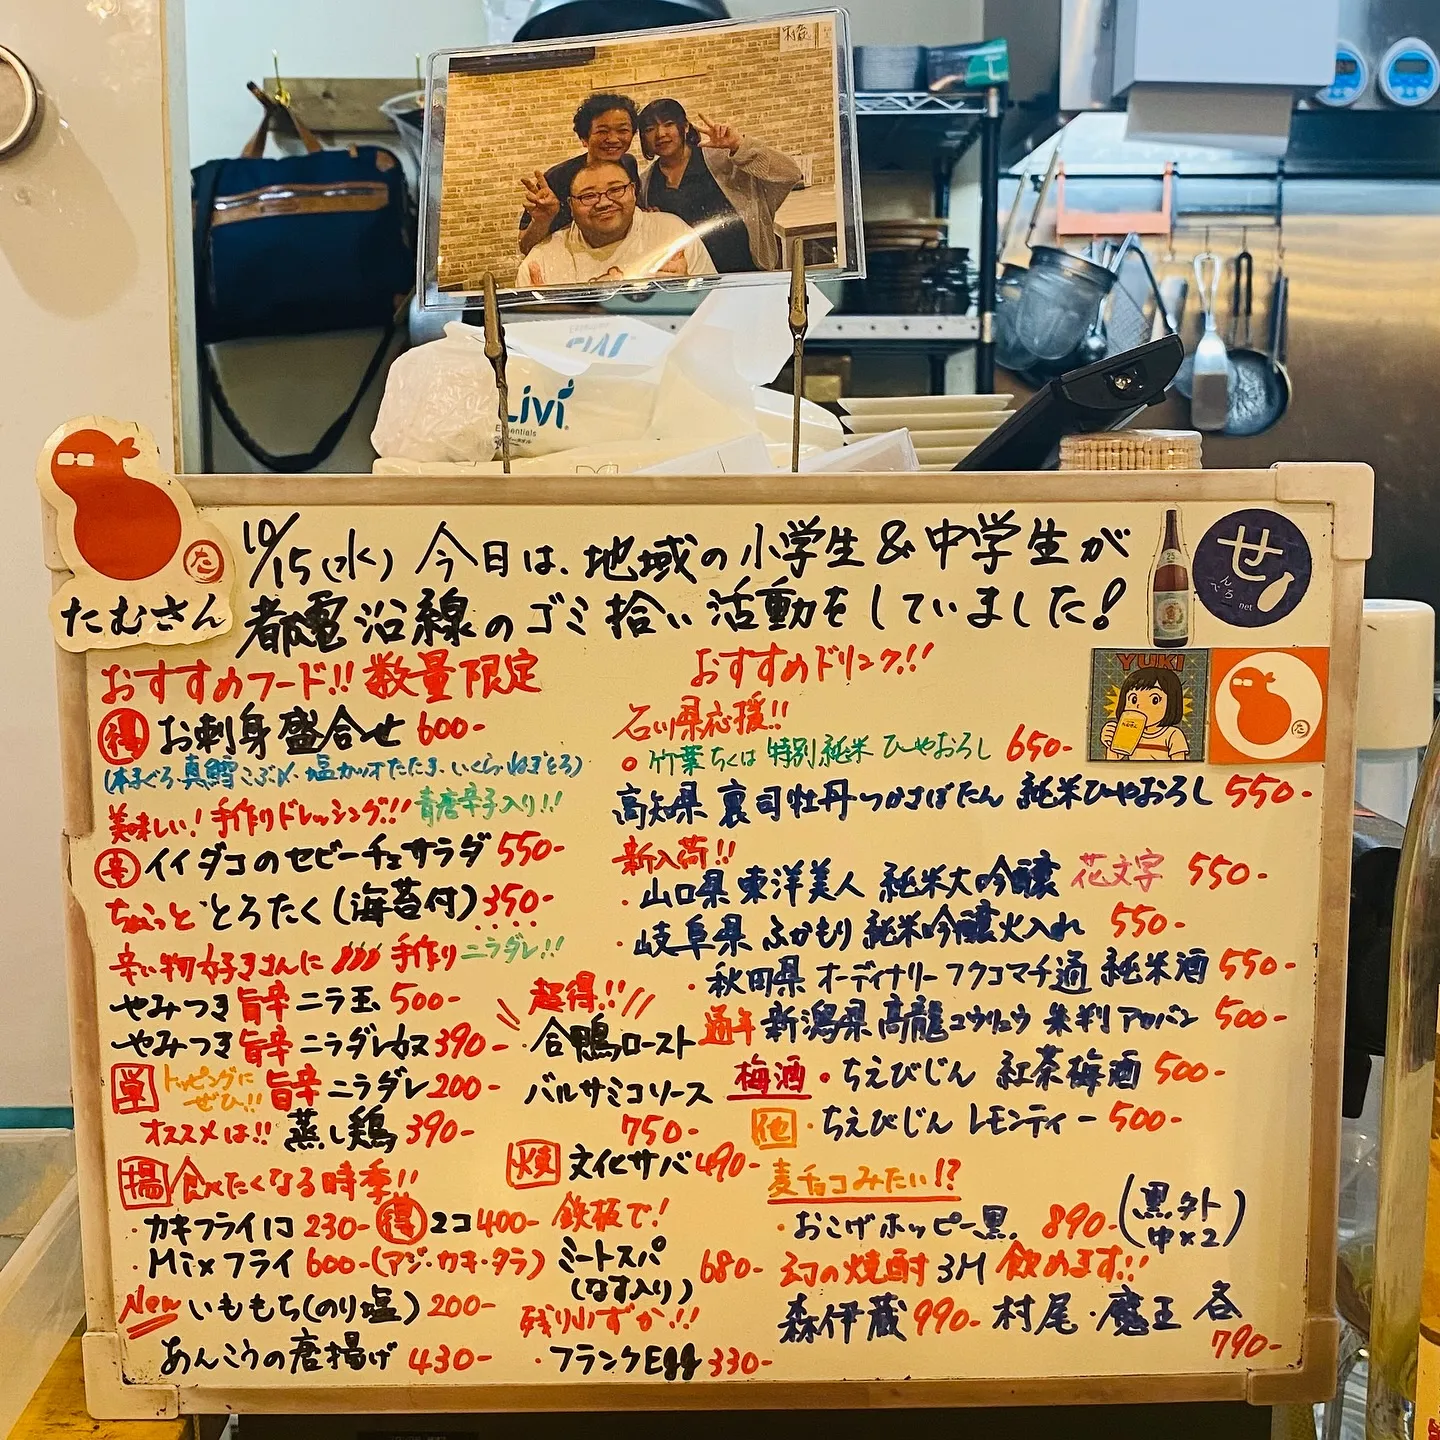 Livi
Essentials
たむさん
10/15(水) 今日は、地域の小学生&中学生が
都電沿線のゴミ拾い活動をしていました!
せ
んべろ
net
YUKI
おすすめフード!! 数量限定
得 お刺身盛合せ 600-
(本まぐろ・真鱈こぶ〆・塩カツオたたき・いくら・ねぎとろ)
美味しい!手作りドレッシング!! 青唐辛子入り!!
辛 イイダコのセビーチェサラダ 550-
ちょっと とろたく(海苔付) 350-
辛い物好きさんに 手作りニラダレ!!
やみつき旨辛ニラ玉 500-
やみつき旨辛ニラダレ奴 390-
単 トッピングにぜひ!! 旨辛ニラダレ 200-
オススメは!! 蒸し鶏 390-
揚 食べたくなる時季!!
・カキフライ1コ 230- 得 2コ 400-
・Mixフライ 600-(アジ・カキ・タラ)
New いももち(のり塩) 200-
あんこうの唐揚げ 430-
超得!!
・合鴨ロースト
バルサミコソース
750-
燻 文化サバ 490-
鉄板で!
ミートスパ
(なす入り) 680-
残りわずか!!
・フランクEgg 330-
おすすめドリンク!!
石川県応援!!
○竹葉 ちくは 特別純米 ひやおろし 650-
高知県 裏司牡丹・つかさぼたん 純米ひやおろし 550-
新入荷!!
・山口県 東洋美人 純米大吟醸 花文字 550-
・岐阜県 ふかもり 純米吟醸火入れ 550-
・秋田県 オーディナリーフクコマチ 純米酒 550-
通年 新潟県 高龍 コウリュウ 500-
梅酒 ・ちえびじん 紅茶梅酒 500-
他 ・ちえびじん レモンティー 500-
麦チョコみたい!?
・おこげホッピー黒 890- (黒外 中×2)
幻の焼酎3M 飲めます!!
森伊蔵 990- 村尾・魔王 各
790-